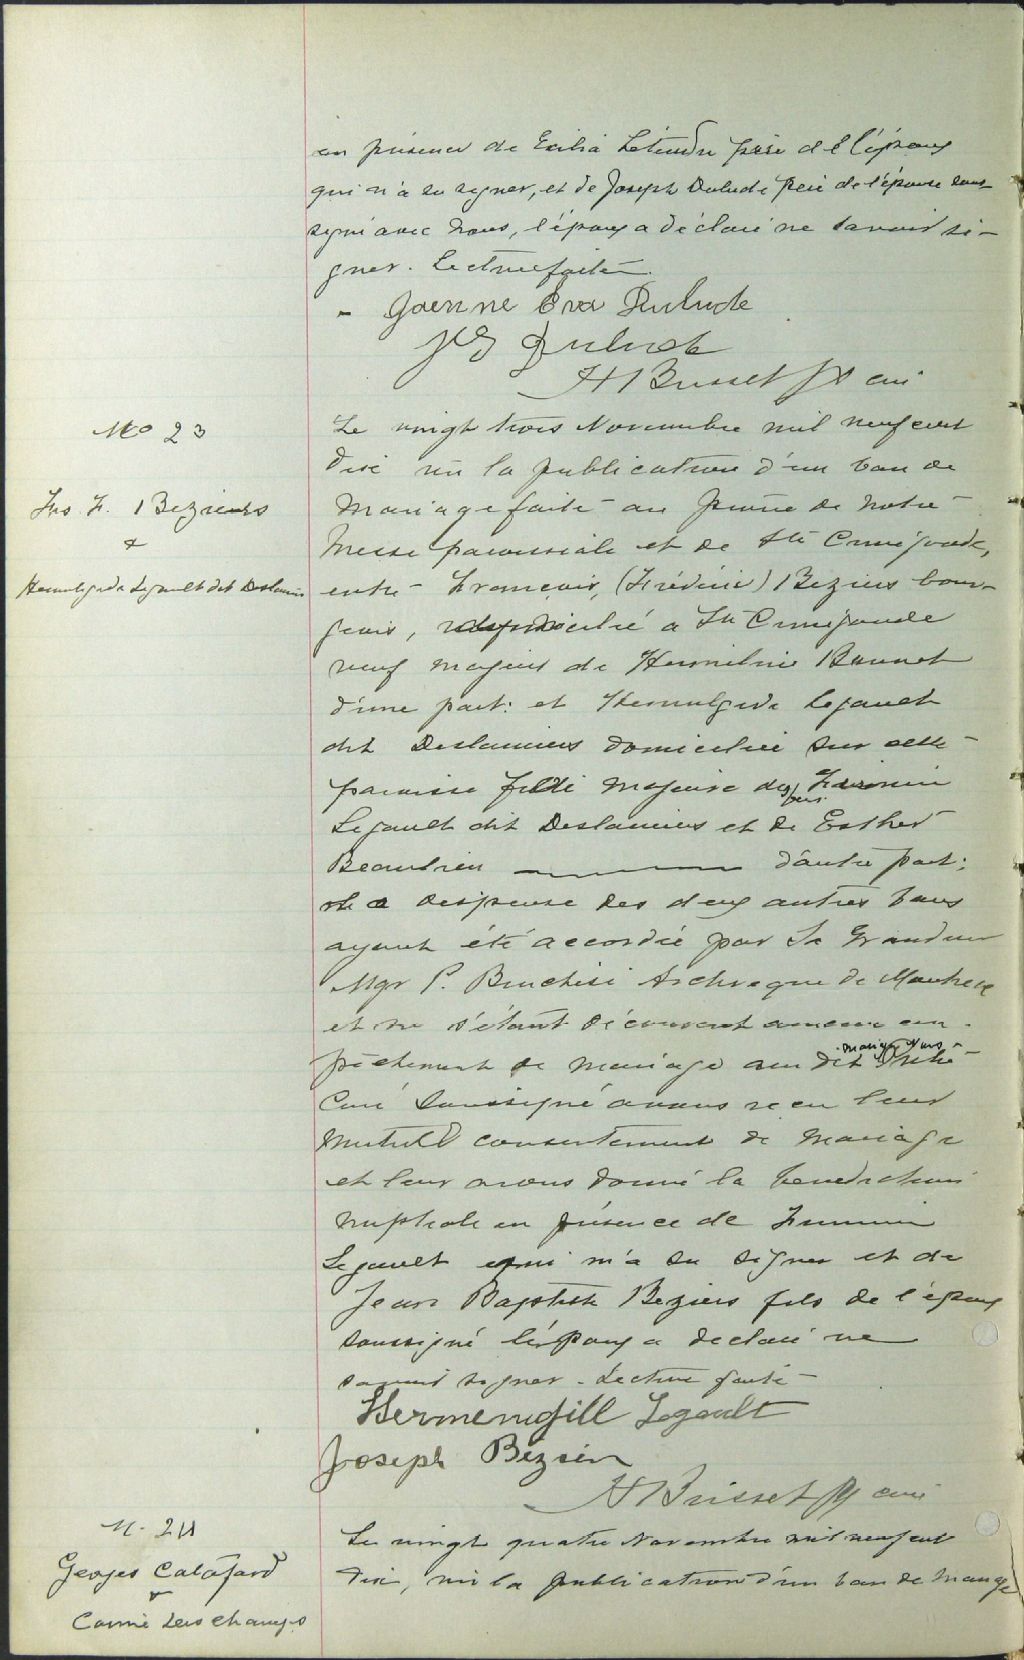 en présence de Exilia Létendre père de l'époux
qui n'a su signer, et de Joseph Dulude père de l'épouse sous-
signé avec nous, l'époux a déclaré ne savoir si-
gner. Lecture faite
- Joenne Eva Dulude
Jos Dulude
H Brisset Ptr curé
No 23
Frs F. Beziers
&
Hermenegilde Legault dit Deslauriers
Le vingt trois Novembre mil neuf cent
dix vu la publication d'un ban de
Mariage faite au prône de notre
Messe paroissiale et de Ste Cunégonde,
entre François, (Frédéric) Beziers bour-
geois, domicilié a Ste Cunégonde
veuf majeur de Hermeline Bonnet
d'une part: et Hermenegilde Legault
dit Deslauriers domiciliée sur cette
paroisse fille majeure de Firmin
Legault dit Deslauriers et de Esther
Beaulieu d'autre part;
la dispense des deux autres bans
ayant été accordée par Sa Grandeur
Mgr P. Bruchési Archevêque de Montréal
et ne s'étant découvert aucun em-
pêchement de mariage au dit mariage Nous Prêtre
Curé Soussigné avons reçu leur
Mutuel consentement de Mariage
et leur avons donné la bénédiction
nuptiale en présence de Firmin
Legault qui n'a su signer et de
Jean Baptiste Beziers fils de l'époux
soussigné l'époux a déclaré ne
savoir signer. Lecture faite
Hermenigill Legault
Joseph Bezier
H Brisset Ptr curé
N. 24
Georges Calafard
&
Corrine Deschamps
Le vingt quatre Novembre mil neuf cent
dix, vu la publication d'un ban de Mariage